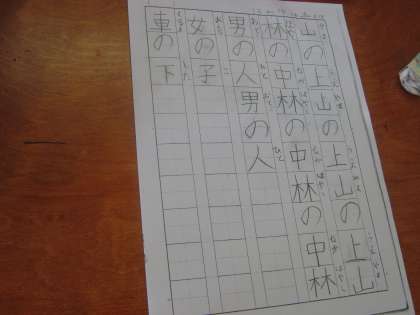 山の上山の上山の上山
林の中林の中林の中林
男の人男の人
女の子
車の下